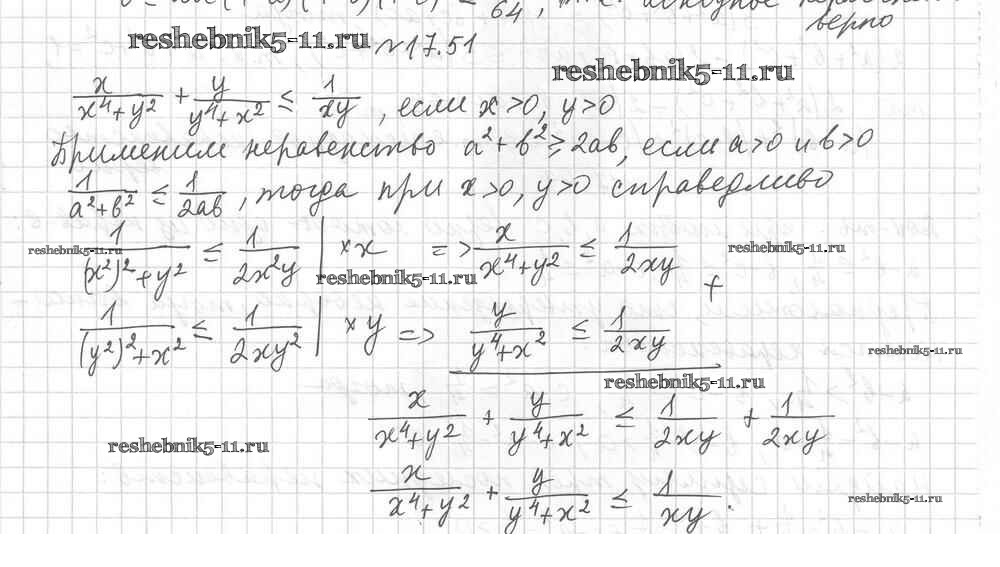 64, исходное
верно
reshebnik5-11.ru №17.51
reshebnik5-11.ru
x/(x⁴+y²) + y/(y⁴+x²) ≤ 1/(xy), если x>0, y>0
Применим неравенство a²+b²≥2ab, если a>0 и b>0
1/(a²+b²) ≤ 1/(2ab), тогда при x>0, y>0 справедливо
reshebnik5-11.ru reshebnik5-11.ru reshebnik5-11.ru
1/((x²)²+y²) ≤ 1/(2x²y) | ×x => x/(x⁴+y²) ≤ 1/(2xy)
+
1/((y²)²+x²) ≤ 1/(2xy²) | ×y => y/(y⁴+x²) ≤ 1/(2xy)
reshebnik5-11.ru
reshebnik5-11.ru
x/(x⁴+y²) + y/(y⁴+x²) ≤ 1/(2xy) + 1/(2xy)
reshebnik5-11.ru
x/(x⁴+y²) + y/(y⁴+x²) ≤ 1/(xy).
reshebnik5-11.ru